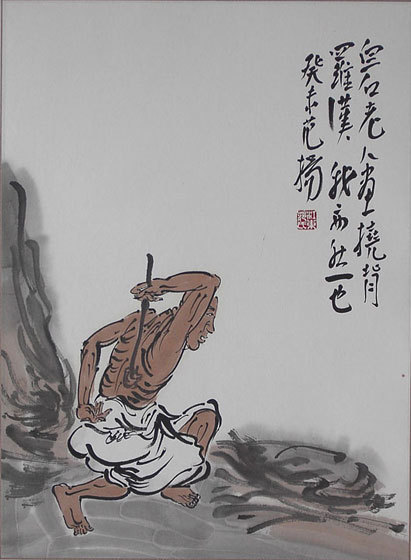 白石老人畫撓背
羅漢我亦然也
癸未范揚